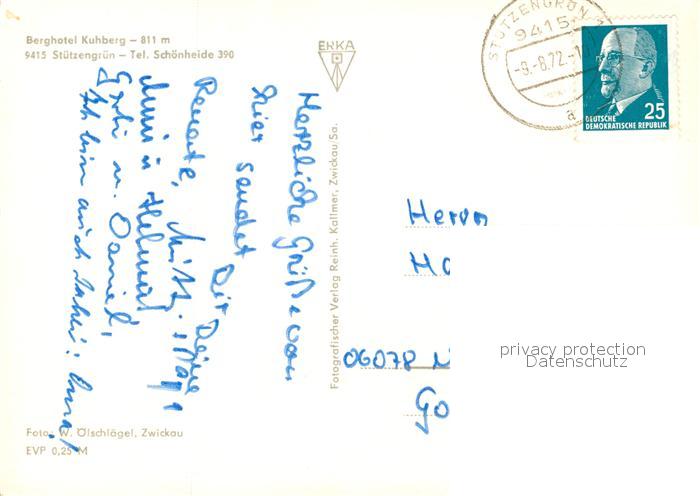 Berghotel Kuhberg – 811 m
9415 Stützengrün – Tel. Schönheide 390
ERKA
STÜTZENGRÜN 1
9415
-9.-8.72.-1
a
25
DEUTSCHE
DEMOKRATISCHE REPUBLIK
Herzliche Grüße von
hier sendet Dir Deine
Renate, Mutti,
Mimi u. Helmut
Gabi u. Daniel,
Ich bin auch dabei: Oma!
Fotografischer Verlag Reinh. Kallmer, Zwickau/Sa.
Herrn
Ho
06078
Go
privacy protection
Datenschutz
Foto: W. Ölschlägel, Zwickau
EVP 0,25 M